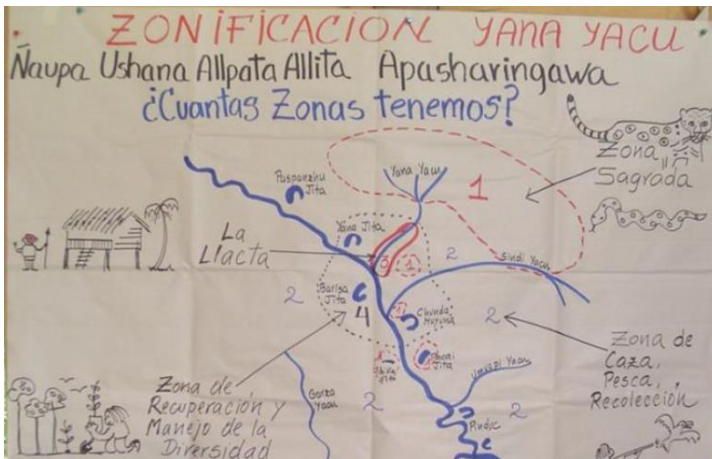 ZONIFICACION YANA YACU
Ñaupa Ushana Allpata Allita Apasharingawa
¿Cuantas Zonas tenemos?
Zona
Sagrada
Yana Yacu
1
Paspanzhu
Jita
Yana Jita
La
Llacta
3
1
2
Sindi Yacu
Bariza
Jita
2
4
1
Chunda
Muyuna
2
Zona de
Caza,
Pesca,
Recolección
Jita
Jita
Zona de
Recuperación y
Manejo de la
Diversidad
Yacu
2
Yacu
2